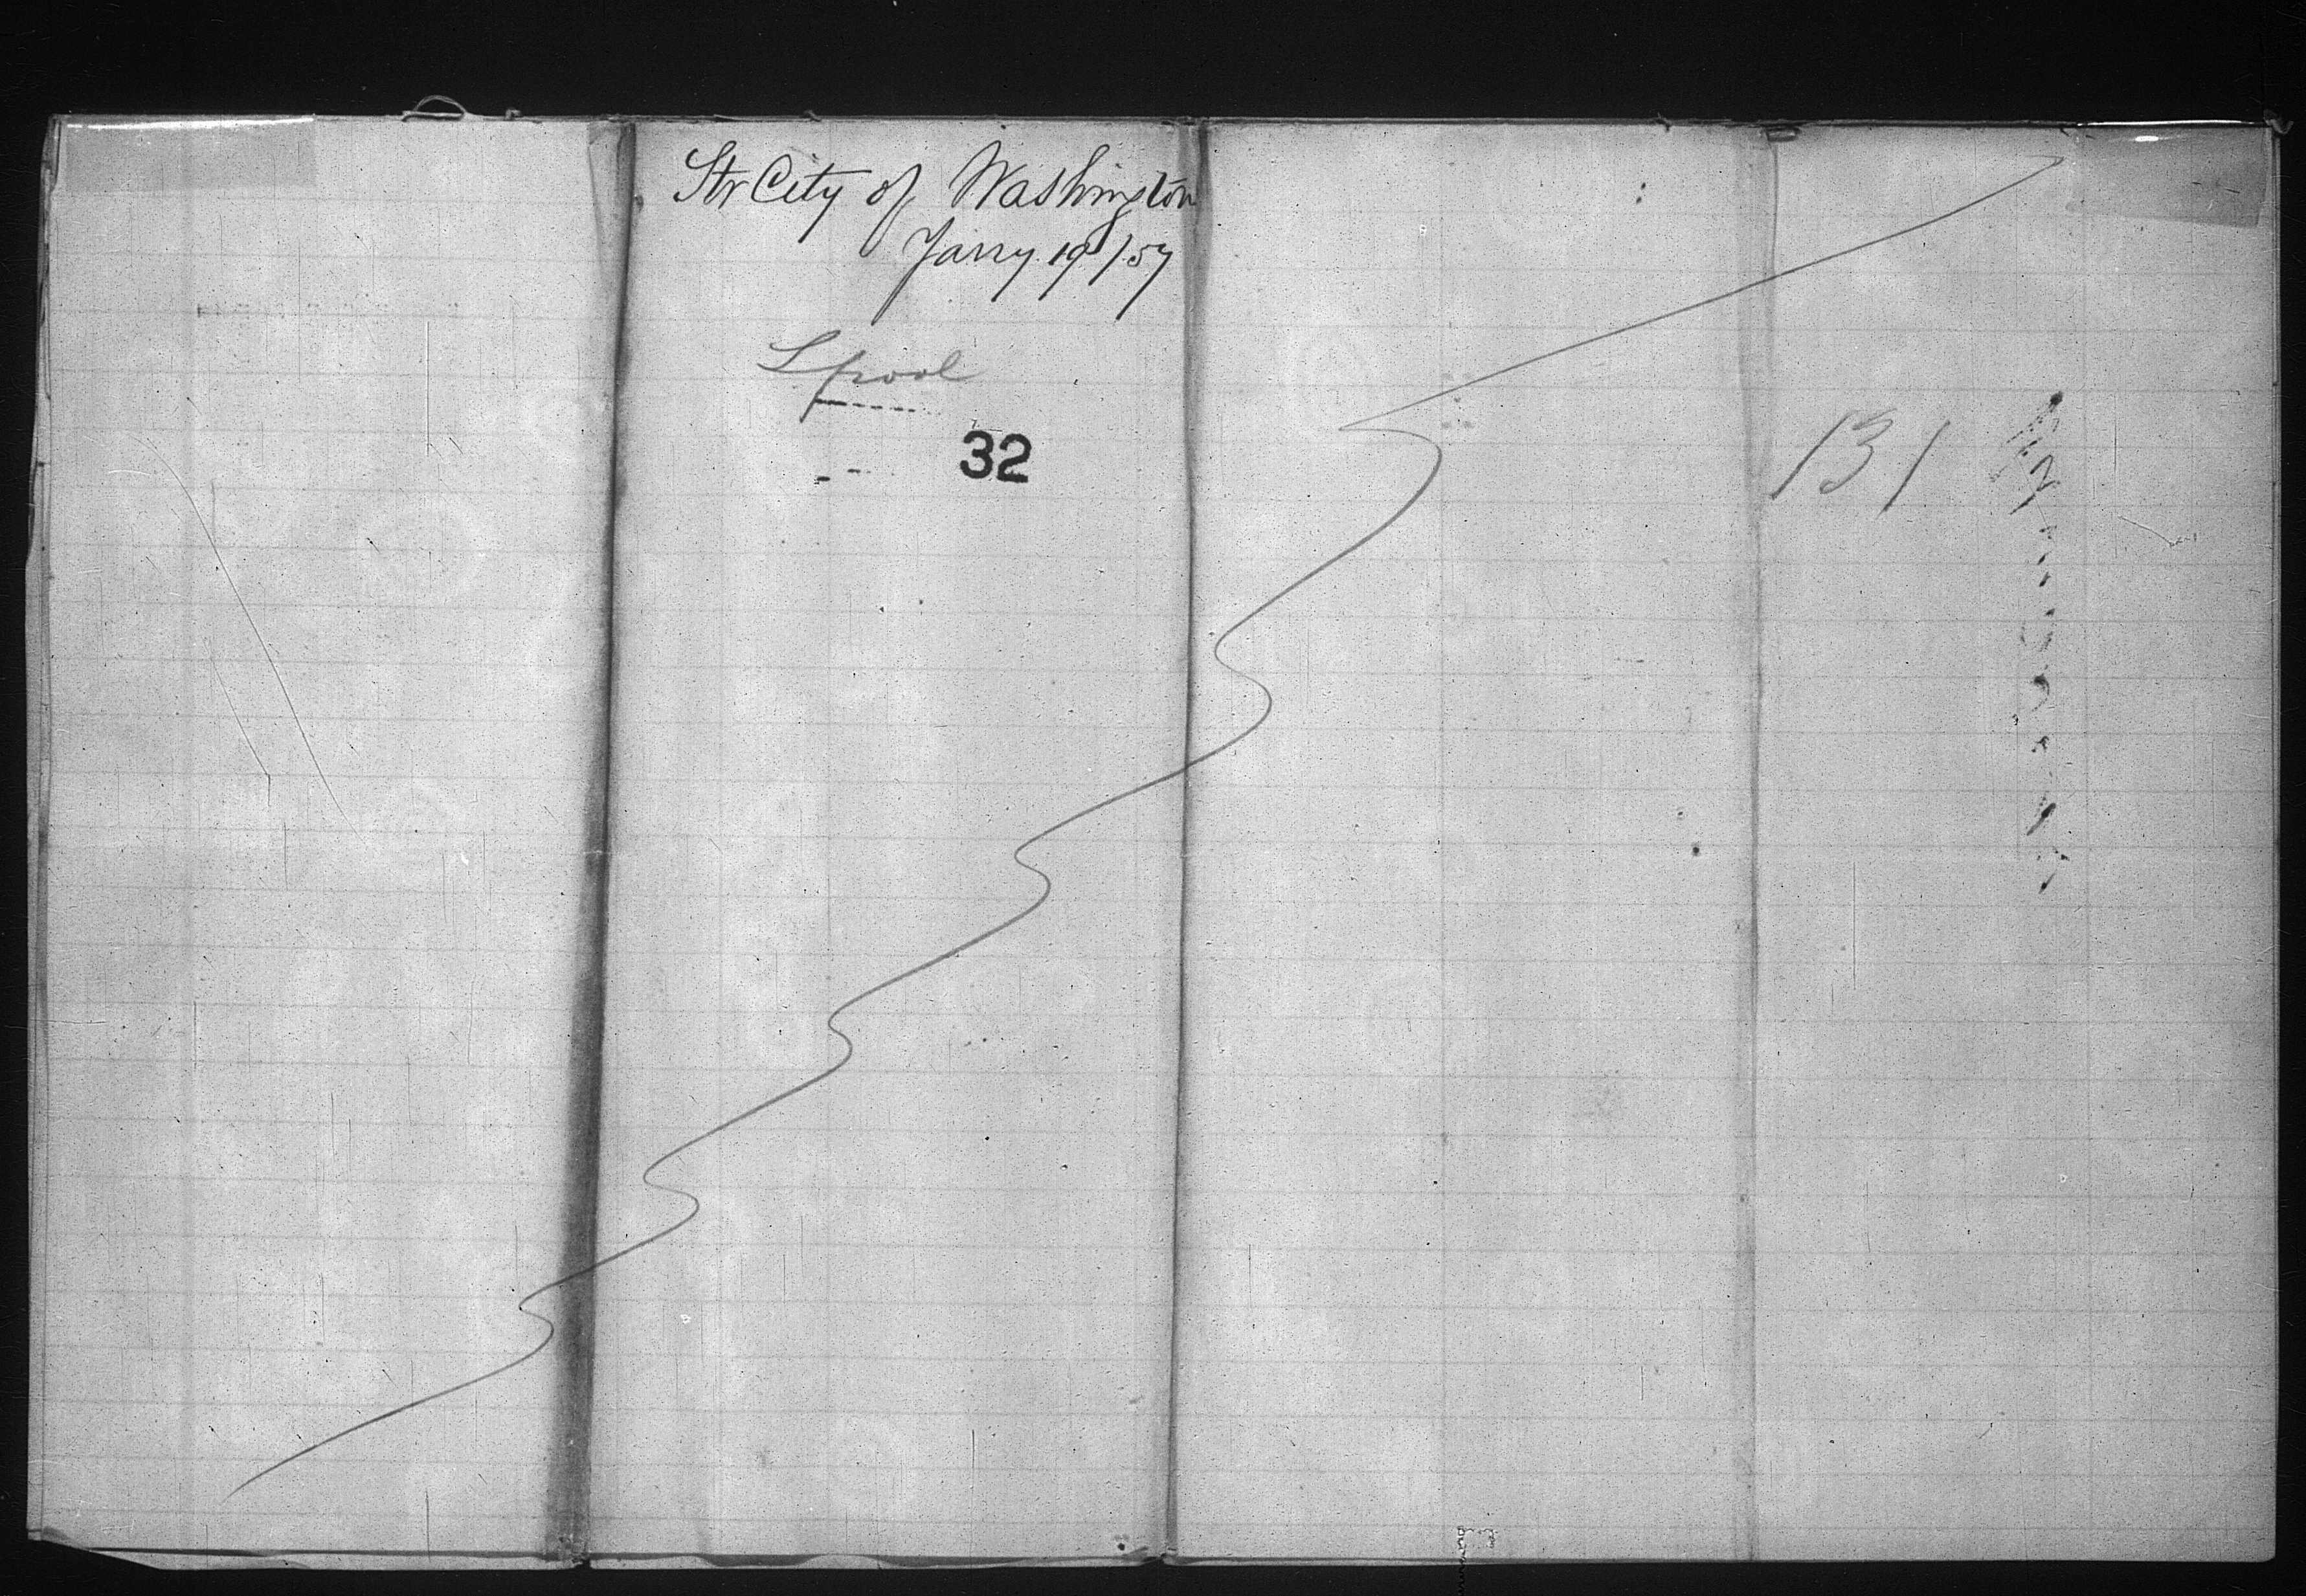 Str City of Washington
Jany. 19/57
Lpool
32
131